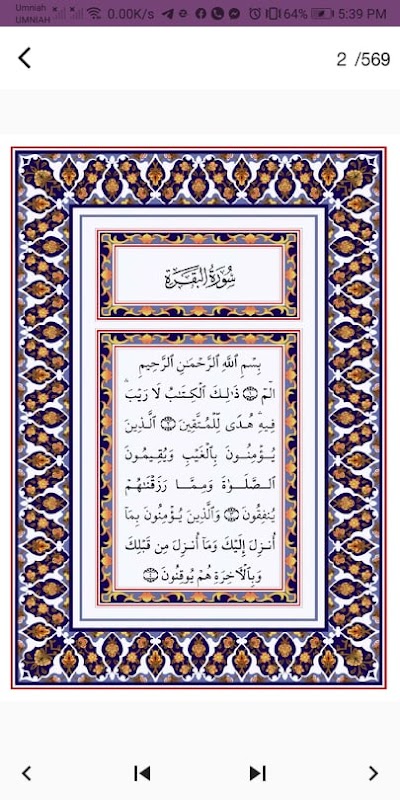 Umniah
UMNIAH
0.00K/s
64%
5:39 PM
2 /569
سُورَةُ البَقَرَةِ
بِسْمِ ٱللَّهِ ٱلرَّحْمَٰنِ ٱلرَّحِيمِ
الٓمٓ ۝ ذَٰلِكَ ٱلْكِتَٰبُ لَا رَيْبَ ۛ
فِيهِ ۛ هُدًى لِّلْمُتَّقِينَ ۝ ٱلَّذِينَ
يُؤْمِنُونَ بِٱلْغَيْبِ وَيُقِيمُونَ
ٱلصَّلَوٰةَ وَمِمَّا رَزَقْنَٰهُمْ
يُنفِقُونَ ۝ وَٱلَّذِينَ يُؤْمِنُونَ بِمَآ
أُنزِلَ إِلَيْكَ وَمَآ أُنزِلَ مِن قَبْلِكَ
وَبِٱلْءَاخِرَةِ هُمْ يُوقِنُونَ ۝